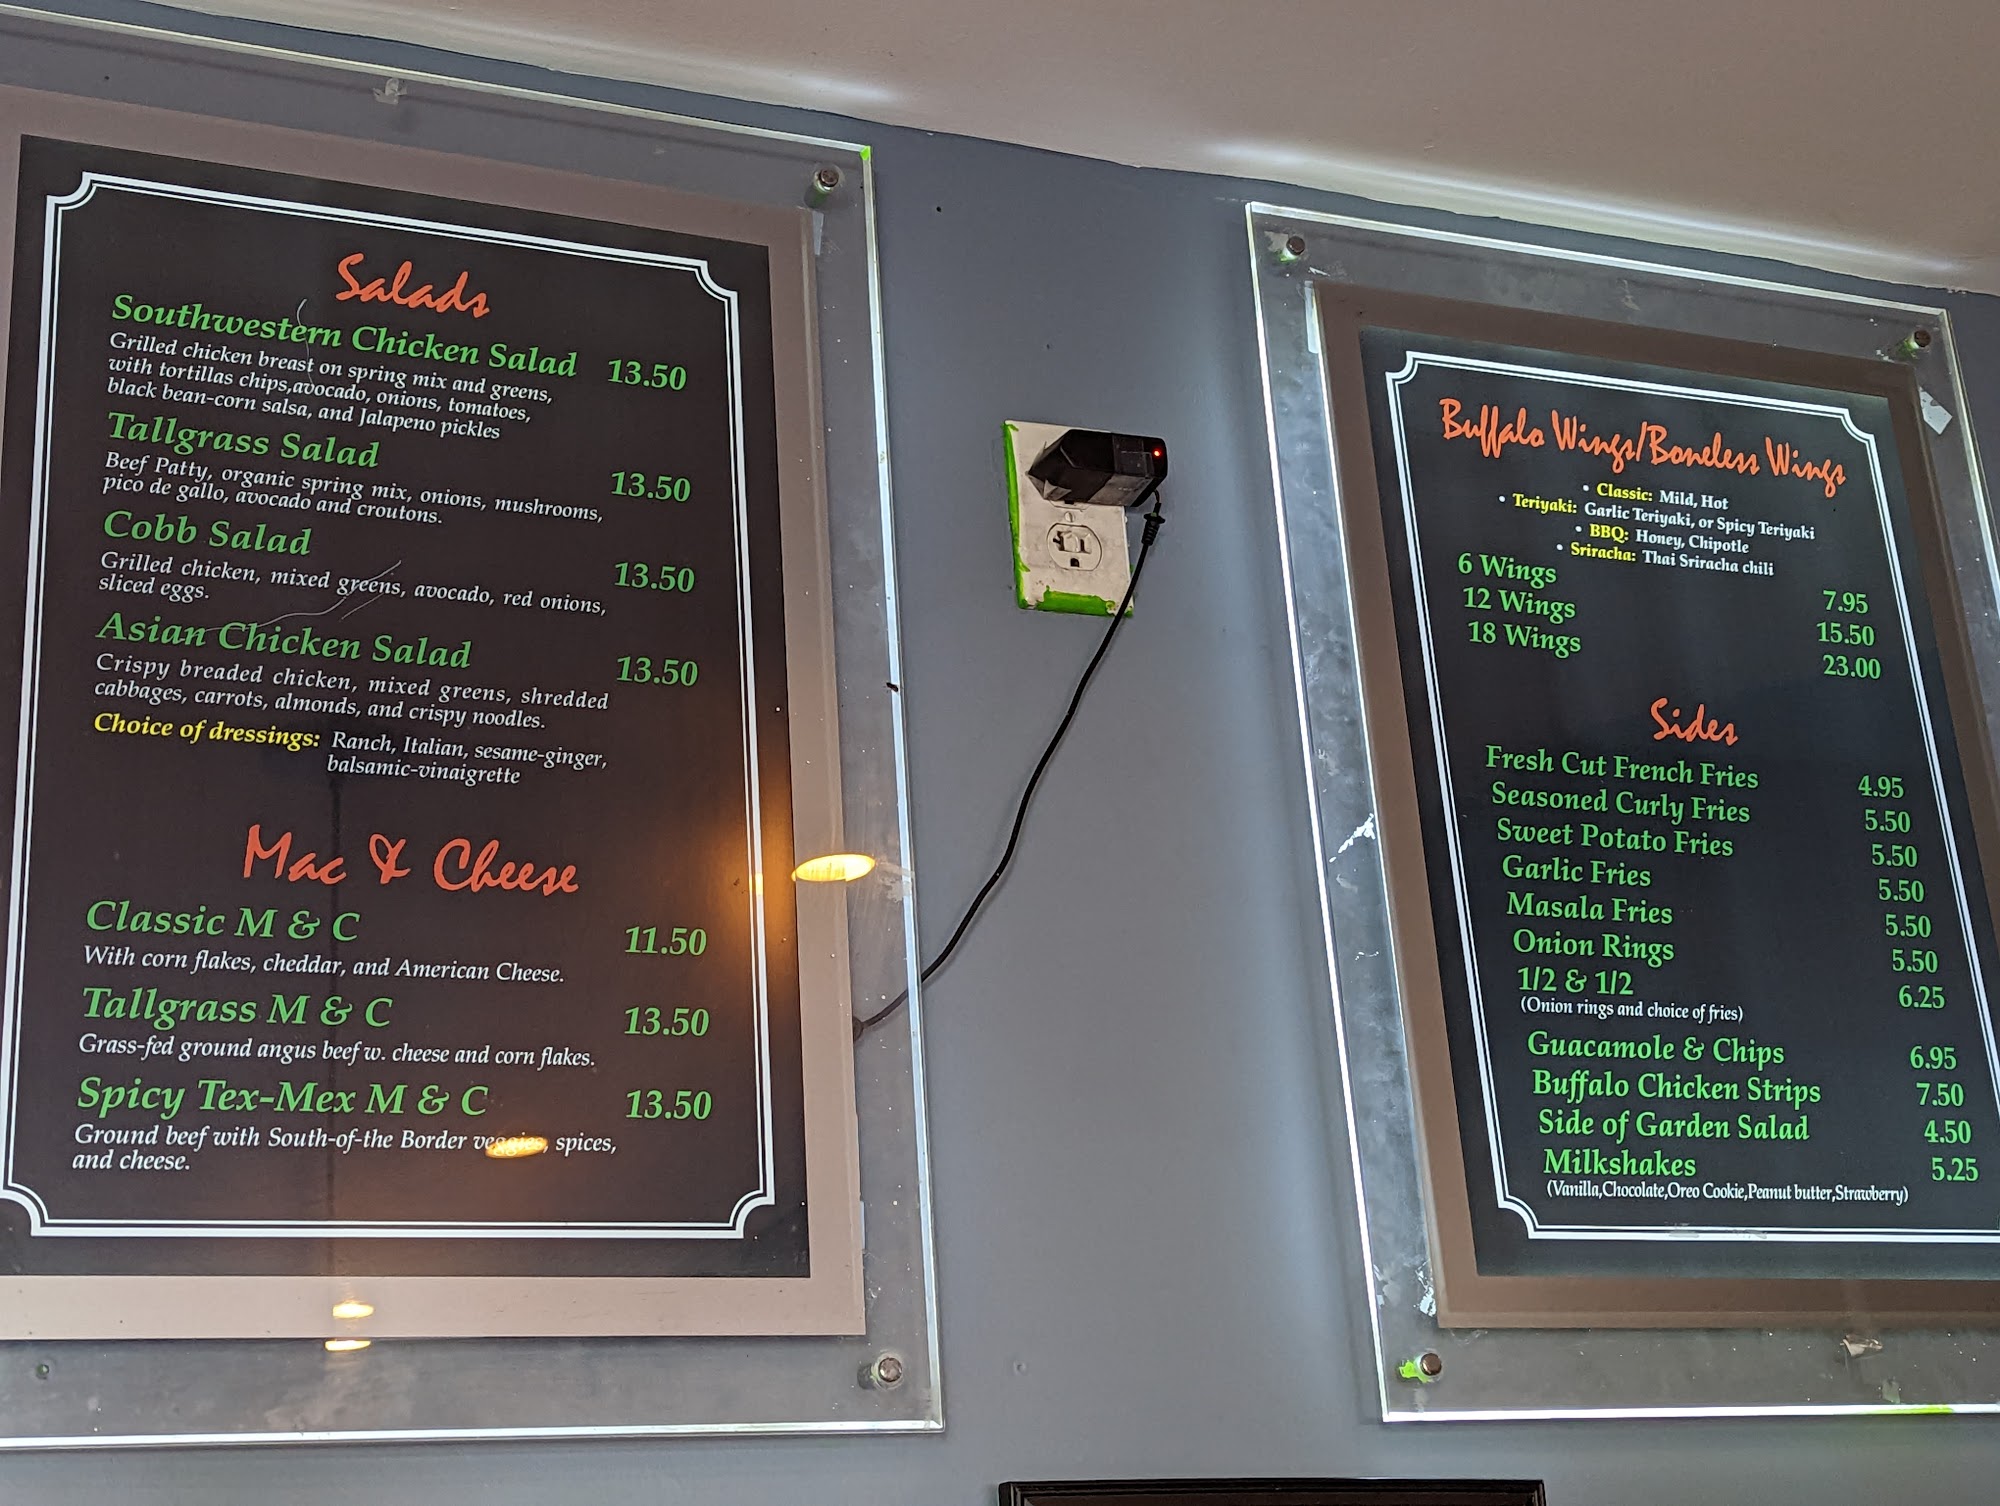 Salads
Southwestern Chicken Salad 13.50
Grilled chicken breast on spring mix and greens,
with tortillas chips,avocado, onions, tomatoes,
black bean-corn salsa, and Jalapeno pickles
Tallgrass Salad 13.50
Beef Patty, organic spring mix, onions, mushrooms,
pico de gallo, avocado and croutons.
Cobb Salad 13.50
Grilled chicken, mixed greens, avocado, red onions,
sliced eggs.
Asian Chicken Salad 13.50
Crispy breaded chicken, mixed greens, shredded
cabbages, carrots, almonds, and crispy noodles.
Choice of dressings: Ranch, Italian, sesame-ginger,
balsamic-vinaigrette
Mac & Cheese
Classic M & C 11.50
With corn flakes, cheddar, and American Cheese.
Tallgrass M & C 13.50
Grass-fed ground angus beef w. cheese and corn flakes.
Spicy Tex-Mex M & C 13.50
Ground beef with South-of-the Border veggies, spices,
and cheese.
Buffalo Wings/Boneless Wings
• Classic: Mild, Hot
• Teriyaki: Garlic Teriyaki, or Spicy Teriyaki
• BBQ: Honey, Chipotle
• Sriracha: Thai Sriracha chili
6 Wings 7.95
12 Wings 15.50
18 Wings 23.00
Sides
Fresh Cut French Fries 4.95
Seasoned Curly Fries 5.50
Sweet Potato Fries 5.50
Garlic Fries 5.50
Masala Fries 5.50
Onion Rings 5.50
1/2 & 1/2 6.25
(Onion rings and choice of fries)
Guacamole & Chips 6.95
Buffalo Chicken Strips 7.50
Side of Garden Salad 4.50
Milkshakes 5.25
(Vanilla,Chocolate,Oreo Cookie,Peanut butter,Strawberry)